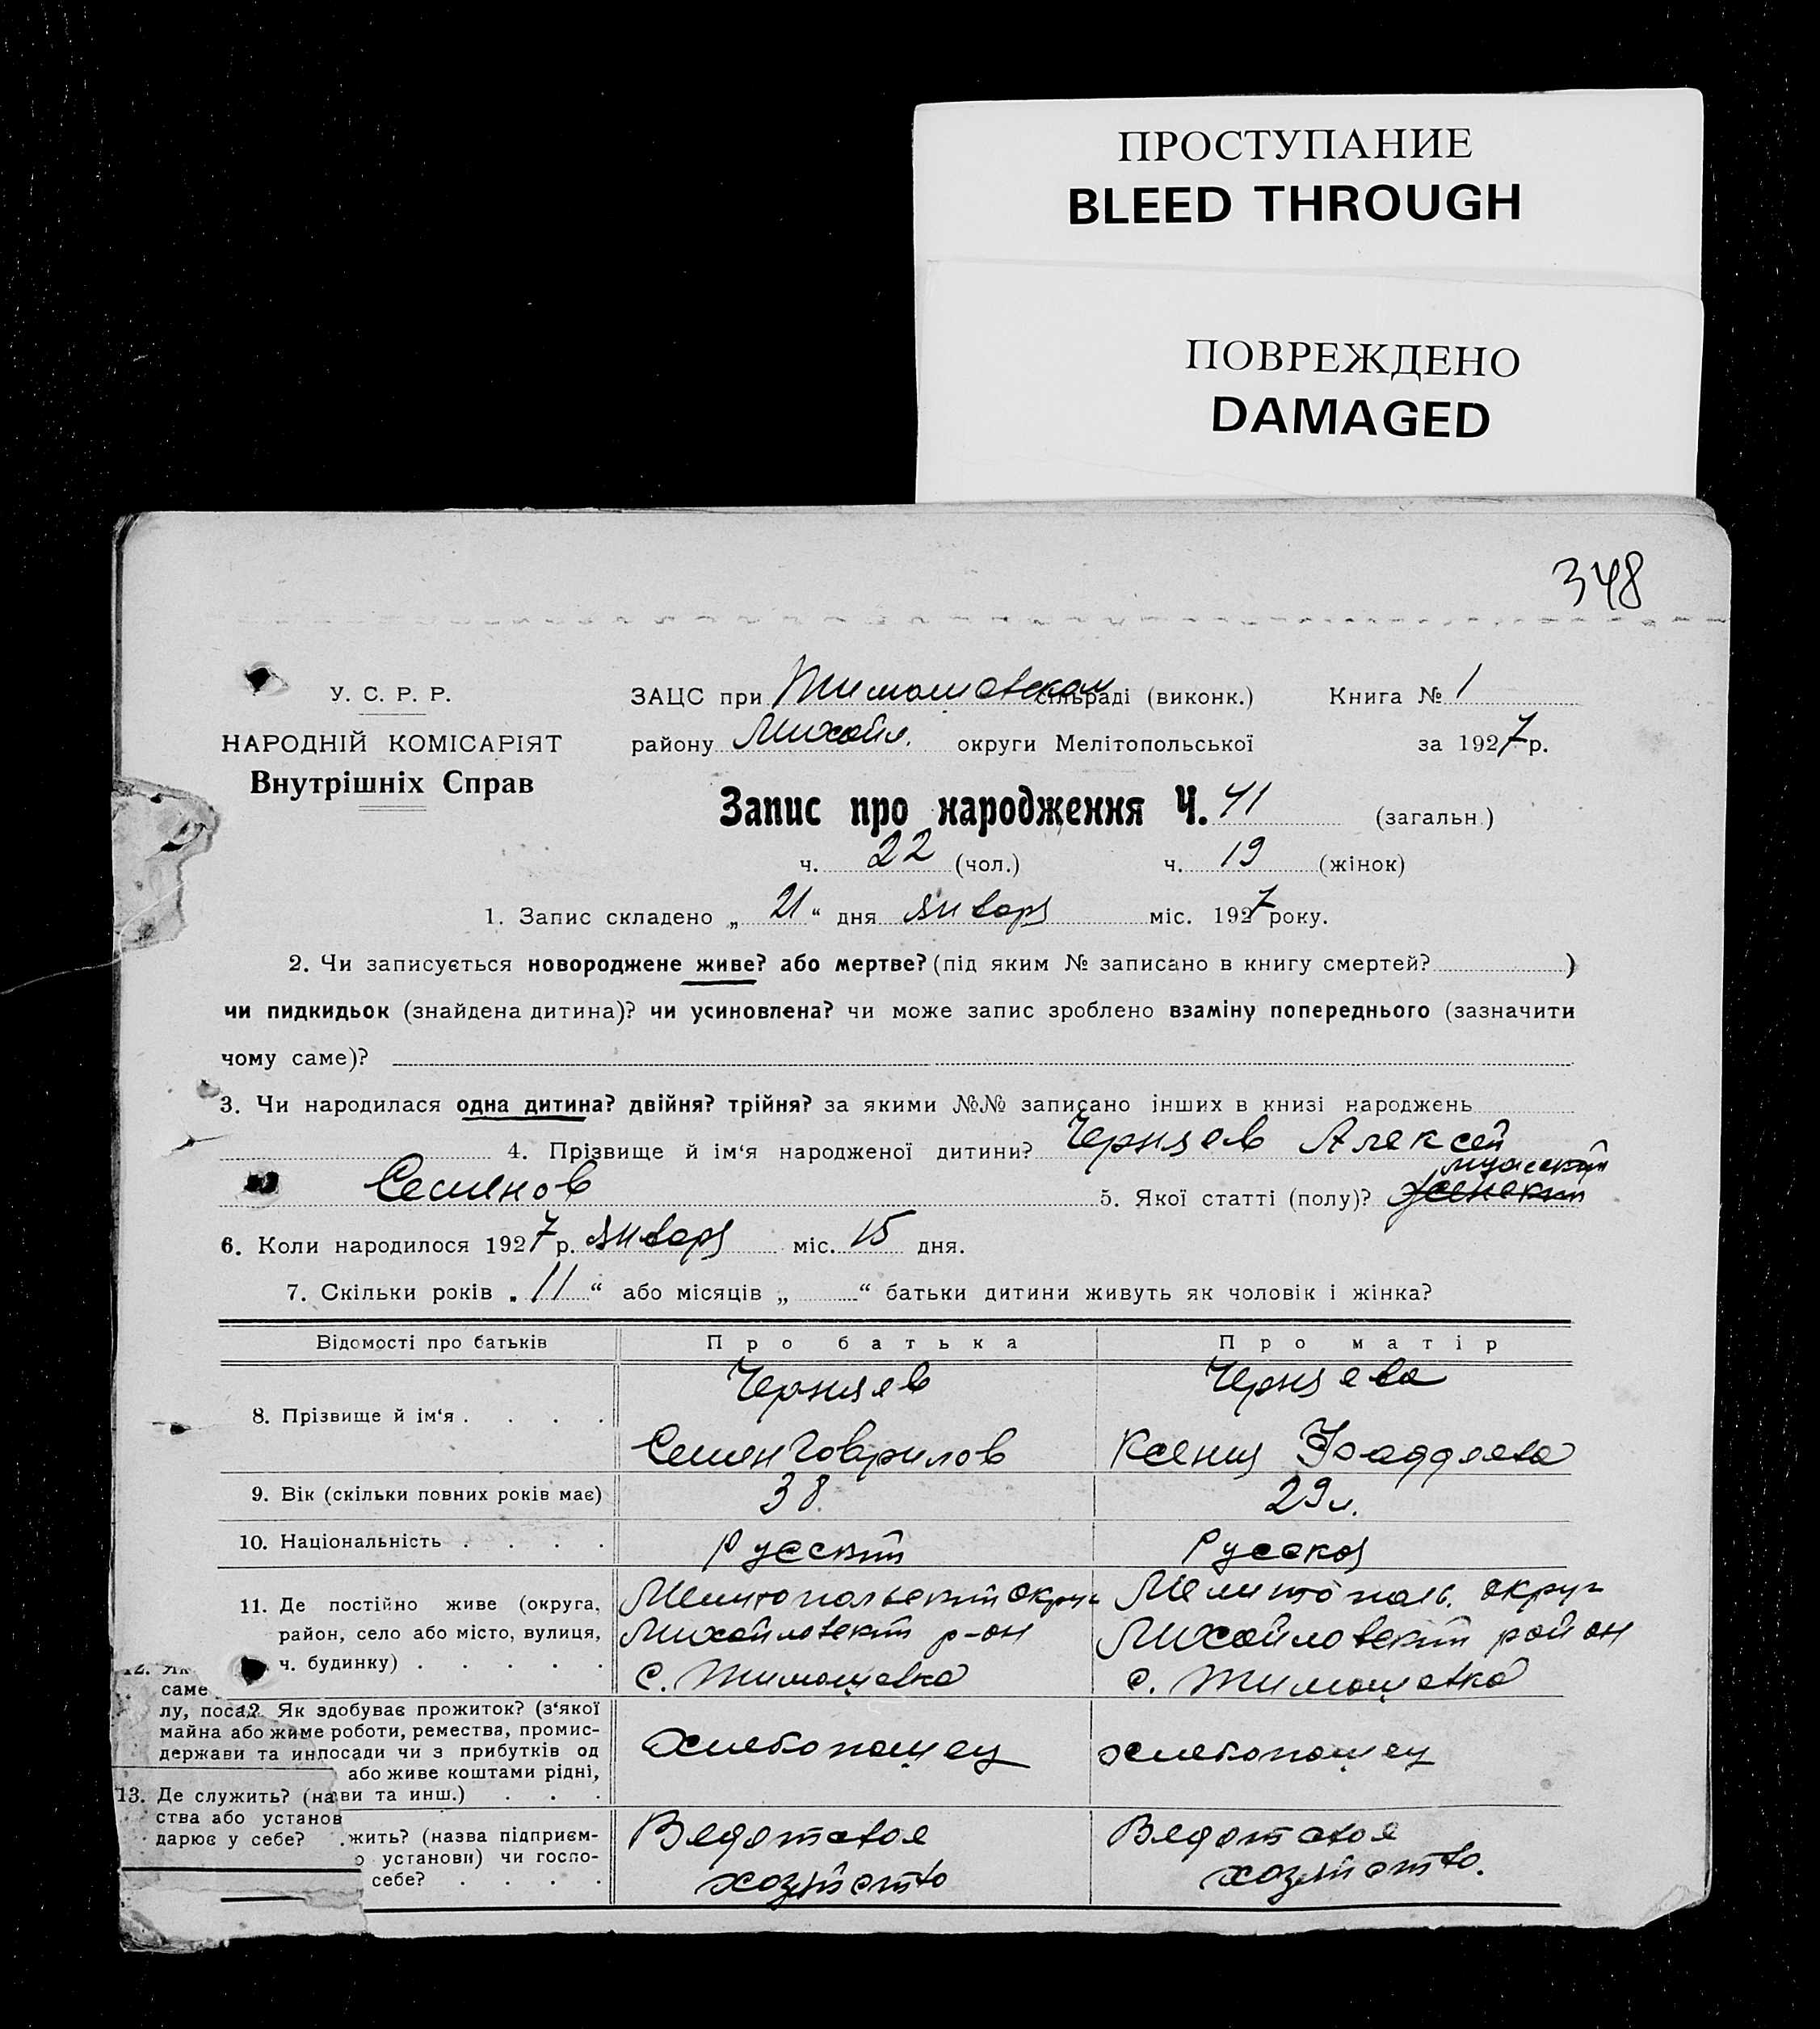 ПРОСТУПАНИЕ
BLEED THROUGH
ПОВРЕЖДЕНО
DAMAGED
348
У. С. Р. Р. ЗАЦС при Тимошовском сільраді (виконк.) Книга № 1
НАРОДНІЙ КОМІСАРІЯТ району Михайл. округи Мелітопольської за 1927 р.
Внутрішніх Справ
Запис про народження Ч. 41 (загальн.)
ч. 22 (чол.) ч. 19 (жінок)
1. Запис складено „ 21 “ дня января міс. 1927 року.
2. Чи записується новороджене живе? або мертве? (під яким № записано в книгу смертей? )
чи пидкидьок (знайдена дитина)? чи усиновлена? чи може запис зроблено взаміну попереднього (зазначити
чому саме)?
3. Чи народилася одна дитина? двійня? трійня? за якими №№ записано інших в книзі народжень
4. Прізвище й ім‘я народженої дитини? Черняев Алексей
мужский
Семенов 5. Якої статті (полу)? женский
6. Коли народилося 1927 р. января міс. 15 дня.
7. Скільки років „ 11 “ або місяців „ “ батьки дитини живуть як чоловік і жінка?
Відомості про батьків Про батька Про матір
Черняев Черняева
8. Прізвище й ім‘я . . . .
Семен Гаврилов Ксения Фаддеева
9. Вік (скільки повних років має) 38. 29 л.
10. Національність . . . . Русский Русская
11. Де постійно живе (округа, Мелитопольский округ Мелитополь. округ
район, село або місто, вулиця, Михайловский р-он Михайловский район
ч. будинку) . . . . . с. Тимошевка с. Тимошевка
12. Як
саме
лу, поса 12. Як здобуває прожиток? (з‘якої
майна або жи ме роботи, ремества, промис-
держави та ин посади чи з прибутків од хлебопашец хлебопашец
або живе коштами рідні,
13. Де служить? (на ви та инш.) . . .
ства або установ
дарює у себе? жить? (назва підприєм- Ведет свое Ведет свое
о установи) чи госпо-
себе? . . . . хозяйство хозяйство.